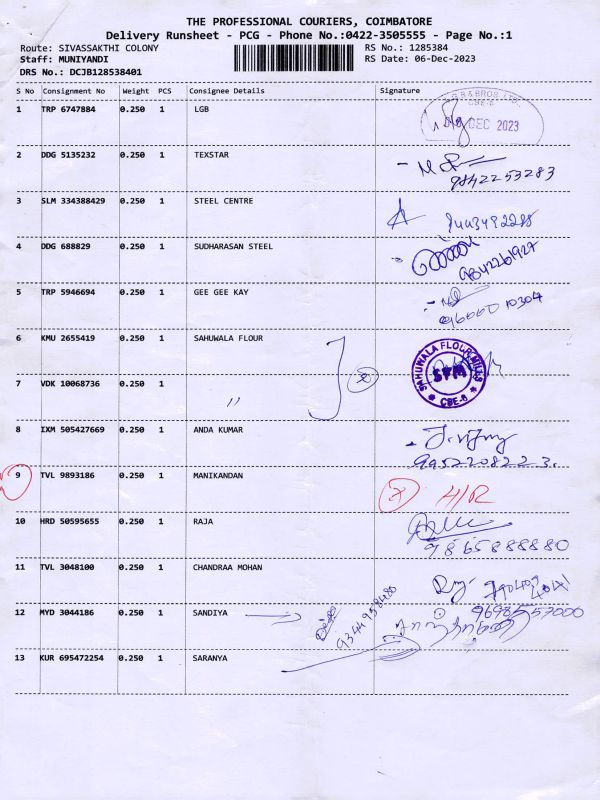 THE PROFESSIONAL COURIERS, COIMBATORE
Delivery Runsheet - PCG - Phone No.:0422-3505555 - Page No.:1
Route: SIVASSAKTHI COLONY RS No.: 1285384
Staff: MUNIYANDI RS Date: 06-Dec-2023
DRS No.: DCJB128538401
S No Consignment No Weight PCS Consignee Details Signature
1 TRP 6747884 0.250 1 LGB
DEC 2023
2 DDG 5135232 0.250 1 TEXSTAR
9842253283
3 SLM 334388429 0.250 1 STEEL CENTRE
4 DDG 688829 0.250 1 SUDHARASAN STEEL
9842261927
5 TRP 5946694 0.250 1 GEE GEE KAY
9600010304
6 KMU 2655419 0.250 1 SAHUWALA FLOUR
SAHUWALA FLOUR MILLS
SFM
CBE-6
7 VDK 10068736 0.250 1 "
2
8 IXM 505427669 0.250 1 ANDA KUMAR
9952208223.
9 TVL 9893186 0.250 1 MANIKANDAN
H/R
10 HRD 50595655 0.250 1 RAJA
9865888880
11 TVL 3048100 0.250 1 CHANDRAA MOHAN
12 MYD 3044186 0.250 1 SANDIYA
9344958480
13 KUR 695472254 0.250 1 SARANYA